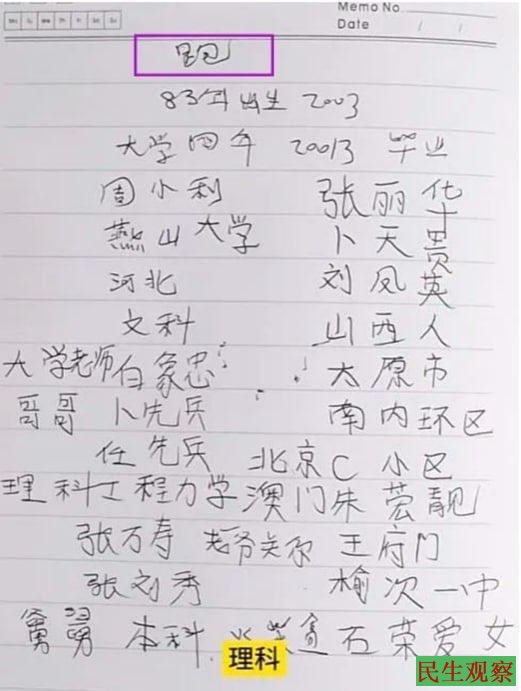 Memo No.
Date / /
跑
83年出生 2003
大学四年 20013 毕业
周小利 张丽华
燕山大学 卜天贵
河北 刘凤英
文科 山西人
大学老师白象忠 太原市
哥哥 卜先兵 南内环区
任先兵 北京C小区
理科工程力学澳门朱芸靓
张万寿 老爷关尔 王府门
张刘秀 榆次一中
舅舅 本科 石荣爱女
理科
民生观察